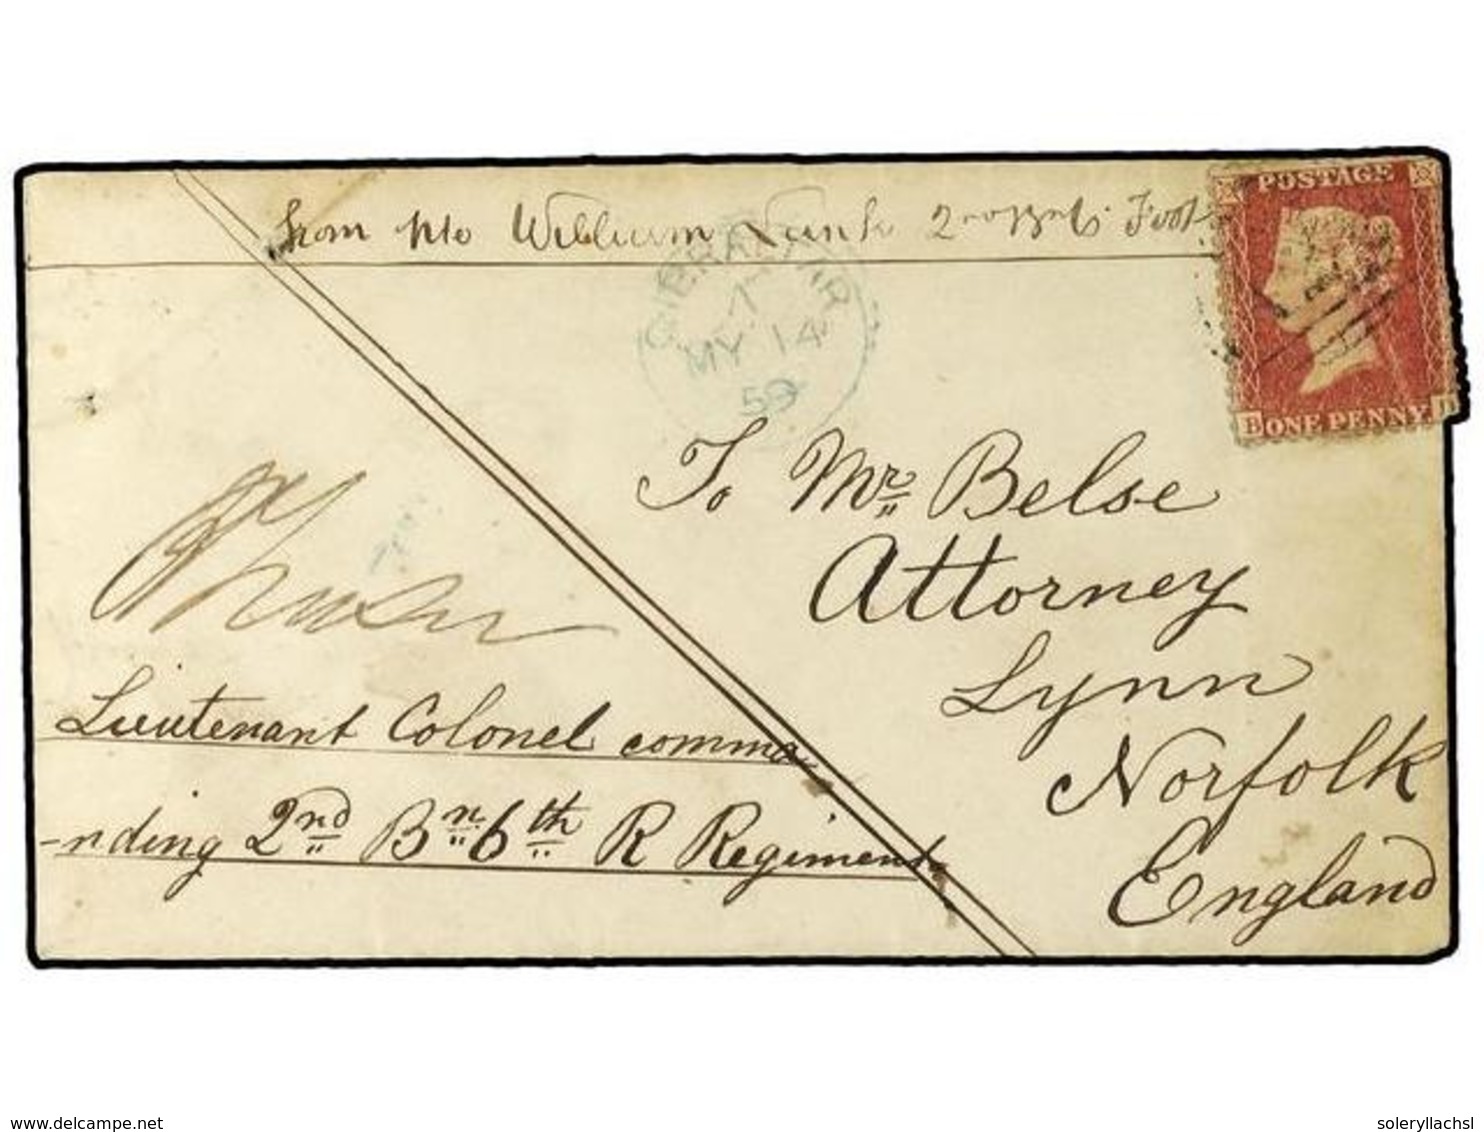 from pte William 2nd Btn 6 Foot
POSTAGE
B ONE PENNY D
GIBRALTAR
A
MY 14
59
To Mr Belse
Attorney
Lynn
Norfolk
England
Lieutenant Colonel comma
-nding 2nd Bn 6th R Regiment
delcampe.net
soleryllachsl